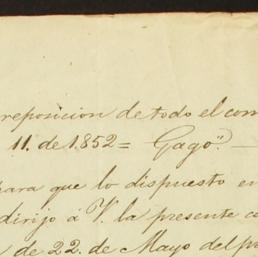 reposicion de todo el com
11. de 1852 = Gago." —
para que lo dispuesto en
dirijo á V. la presente c
de 22. de Mayo del p